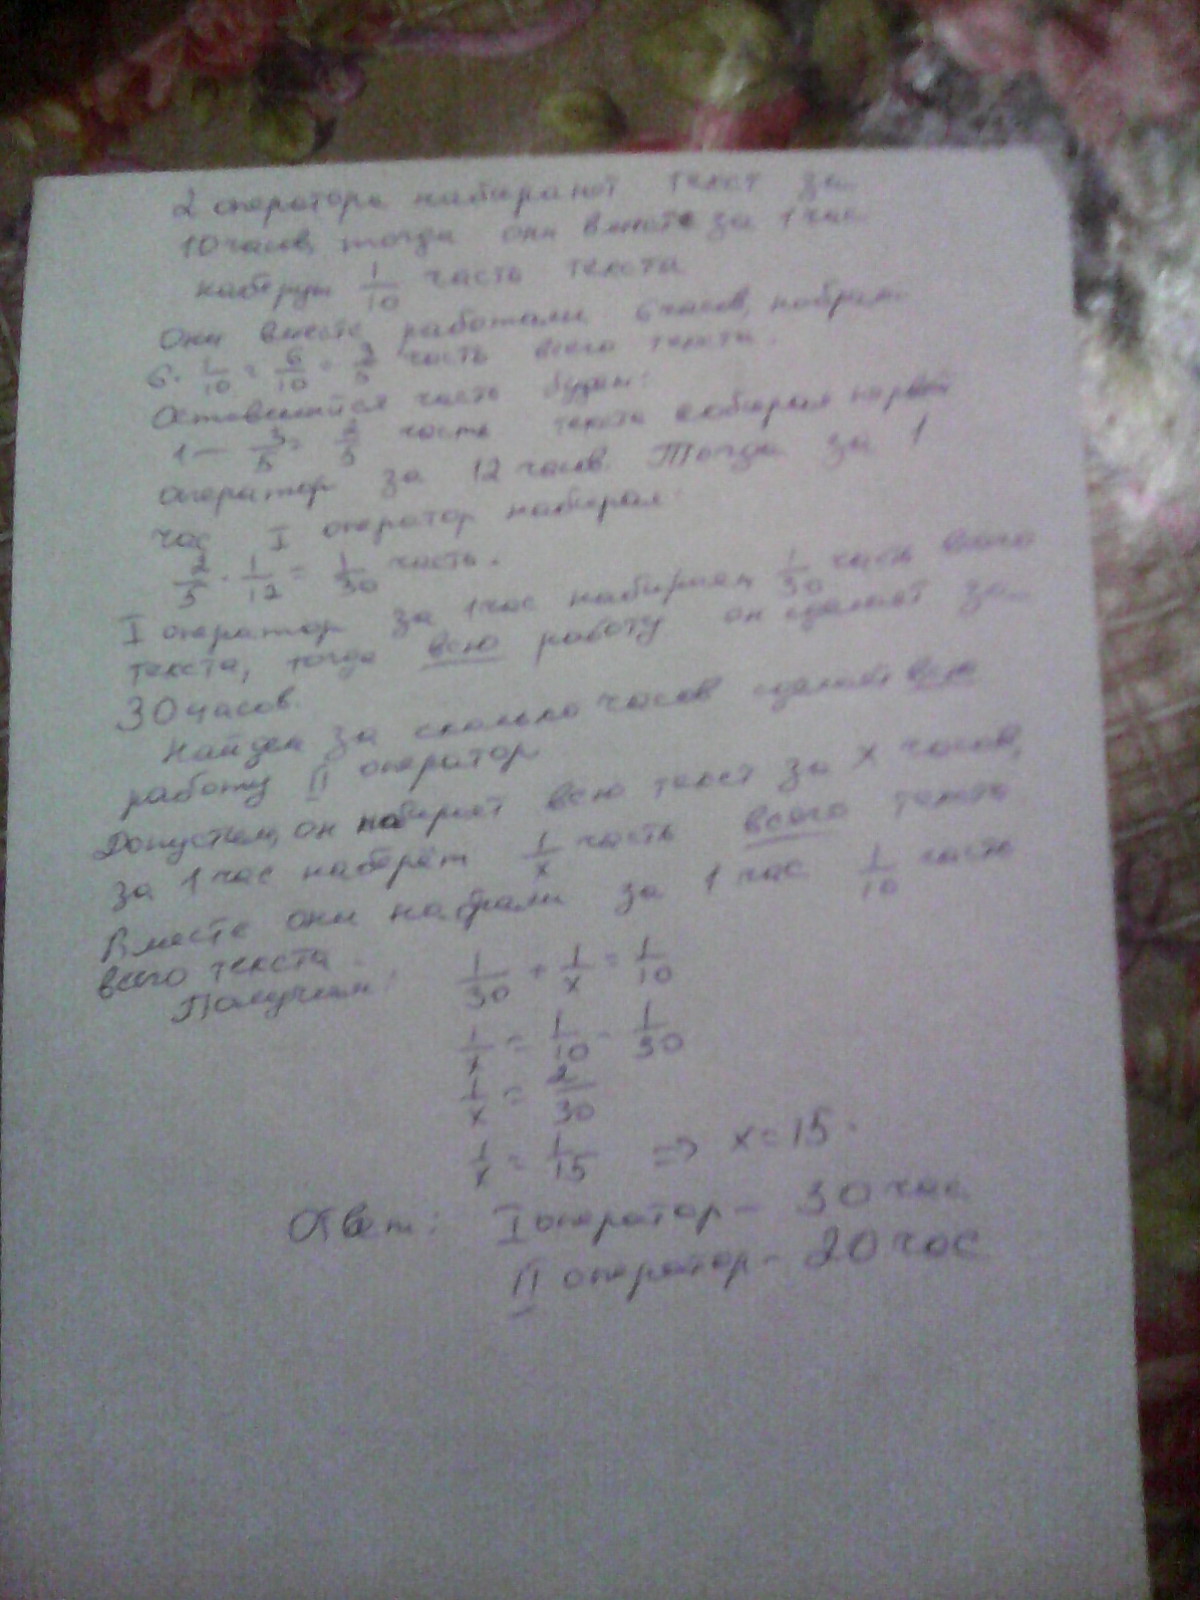 2 оператора набирают текст за
10 часов, тогда они вместе за 1 час
наберут 1/10 часть текста
Они вместе работали 6 часов, набрали
6 · 1/10 = 6/10 = 3/5 часть всего текста.
Оставшийся часть будет:
1 - 3/5 = 2/5 часть текста набирал первый
оператор за 12 часов. Тогда за 1
час I оператор набирал:
2/5 · 1/12 = 1/30 часть.
I оператор за 1 час набирает 1/30 часть всего
текста, тогда всю работу он сделает за
30 часов.
Найдем за сколько часов сделает всю
работу II оператор
Допустим, он набирает всю текст за x часов,
за 1 час наберёт 1/x часть всего текста
Вместе они набрали за 1 час 1/10 часть
всего текста.
Получим: 1/30 + 1/x = 1/10
1/x = 1/10 - 1/30
1/x = 2/30
1/x = 1/15 => x = 15.
Ответ: I оператор - 30 час
II оператор - 20 час